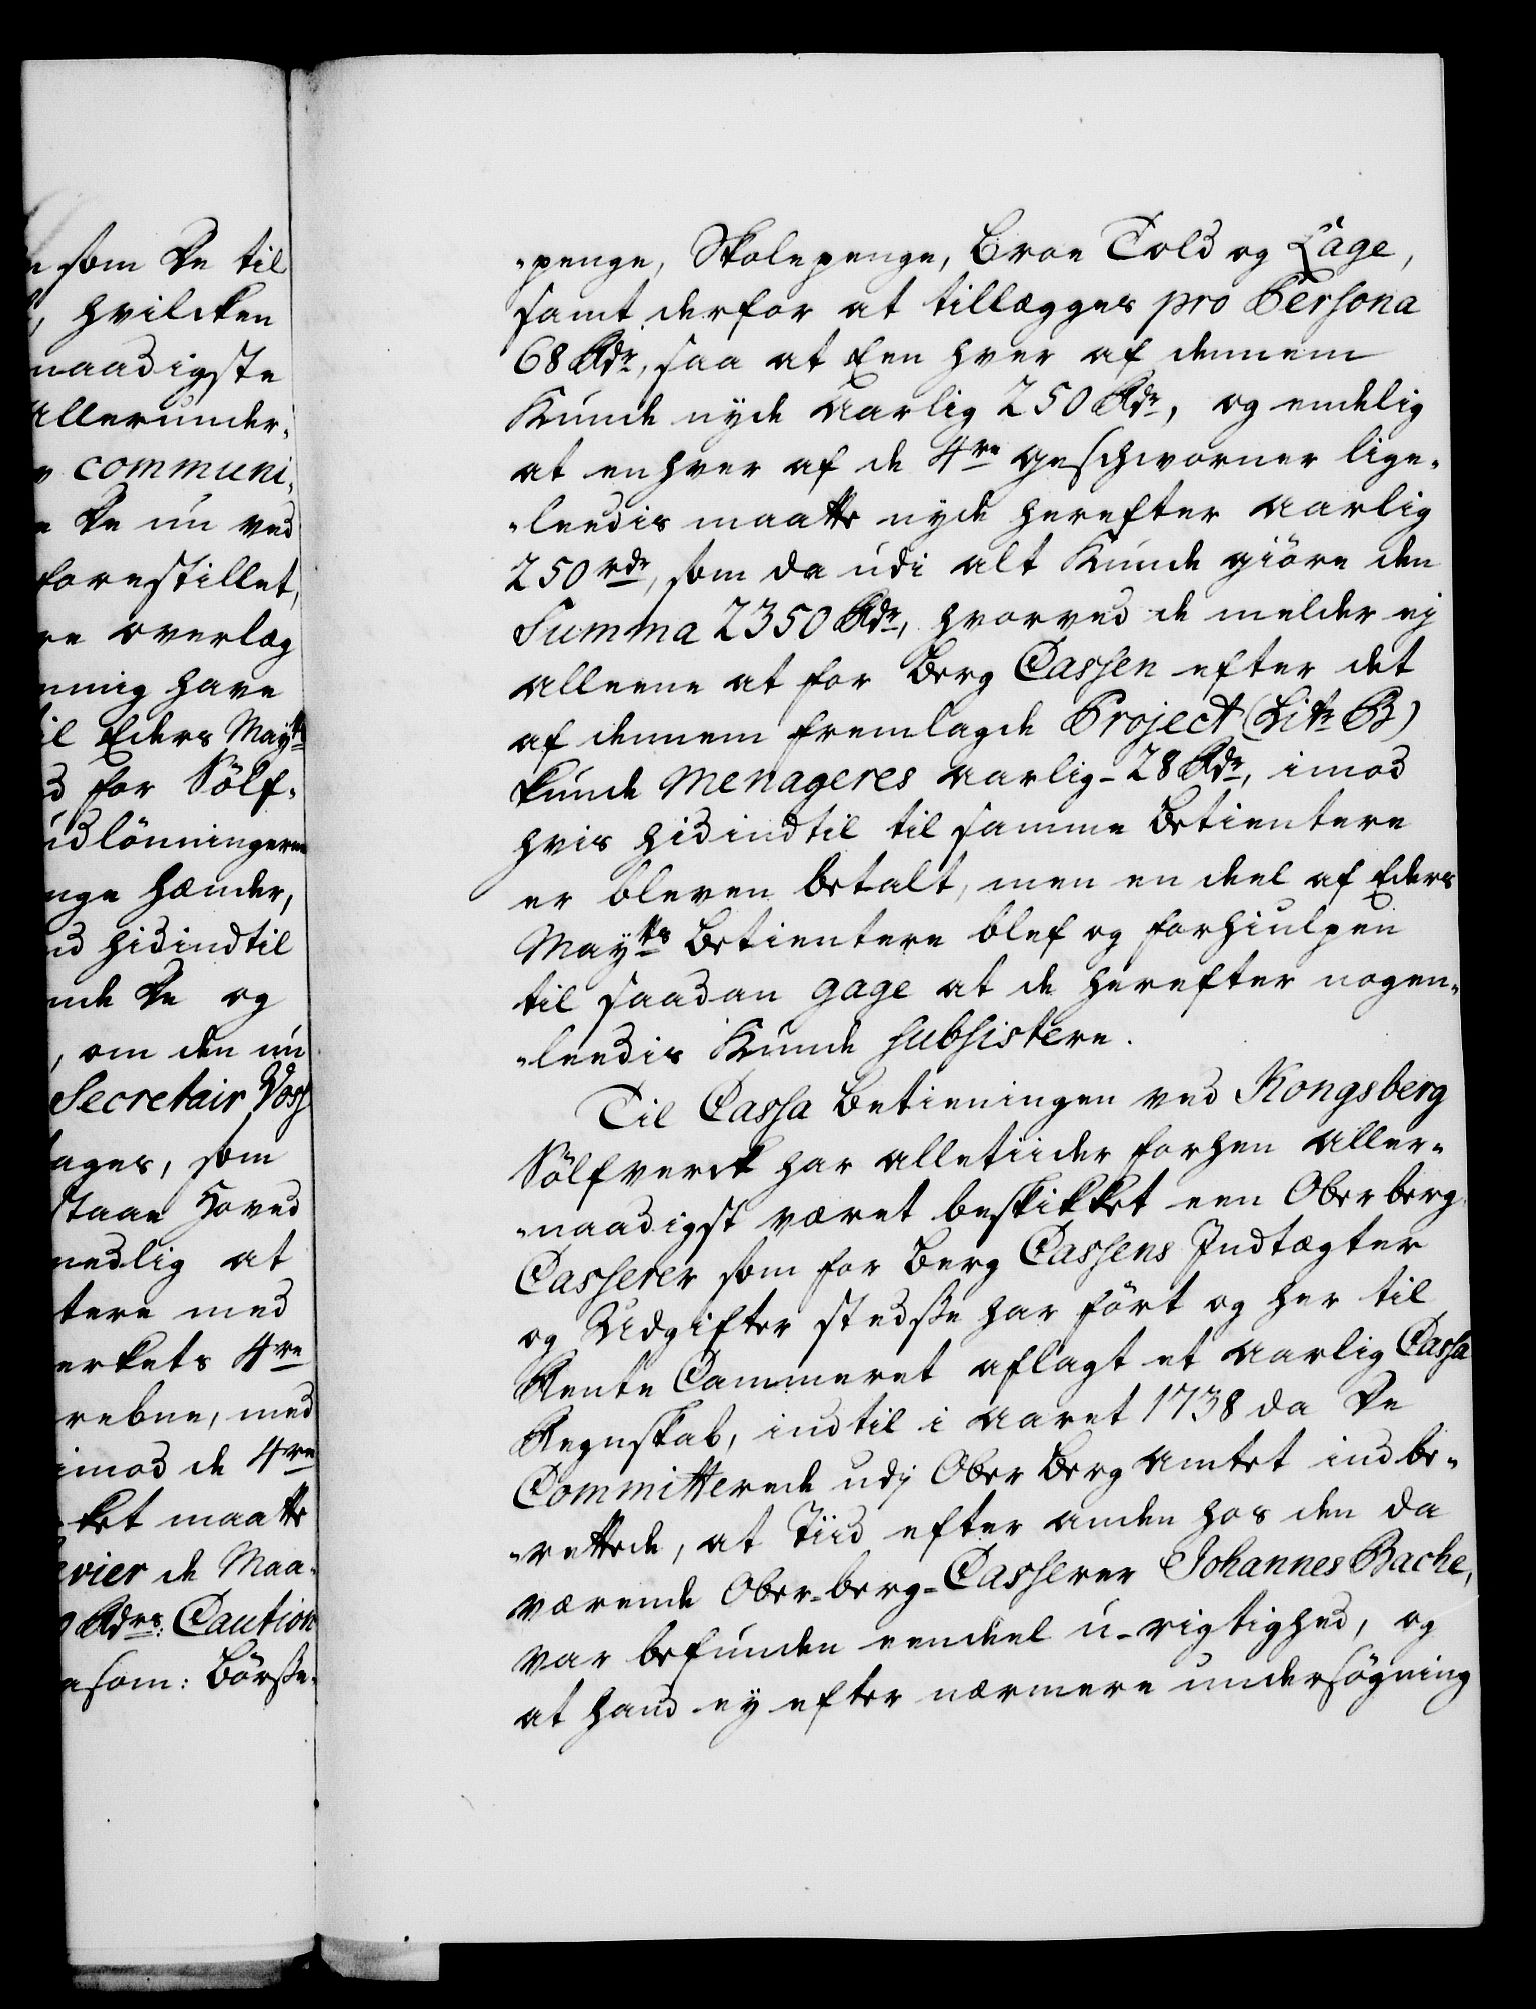 n som De til
, hvilcken
naadigste
Allerunder-
v communi-
e De nu ved
forestillet,
re overlæg
nmig have
il Eders Maytt
d for Sölf-
udlönningerne
nge hænder,
nd hidindtil
nde De og
, om den nu
Secretair Voss
tages, som
staae Hoved
nedlig at
tere med
erkets 4re
rebne, med
imod de 4re
ket maatte
evier de Maa-
0 Rdrs: Caution
esom: Börsse-
-penge, Skolepenge, Broe Told og Läge,
samt derfor at tillægges pro Persona
68 Rdr, saa at Een hver af dennem
Kunde nyde Aarlig 250 Rdr, og endelig
at enhver af de 4re Geschworner lige-
-leedis maatte nyde herefter Aarlig
250 rdr, som da udi alt Kunde giöre den
Summa 2350 Rdr, hvorved de melder ej
alleene at for Berg Cassen efter det
af dennem fremlagde Project (Litr B)
kunde Menageres Aarlig - 28 Rdr, imod
hvis hidindtil til samme Betientere
er bleven betalt, men en deel af Eders
Maytts Betientere blef og forhiulpen
til saadan gage at de herefter nogen-
-leedis Kunde subsistere.
Til Cassa Betieningen ved Kongsberg
Sölfverck har alletiider forhen Aller-
-naadigst været beskikket een Oberberg
Casserer som for Berg Cassens Indtægter
og Udgifter stedsse har fört og her til
Rente Cammeret aflagt et Aarlig Cassa
Regnskab, indtil i Aaret 1738 da De
Committerede udj Ober Berg Amtet indbe-
-rettede, at Tiid efter anden hos den da
værende Ober-berg-Casserer Johannes Bache,
var befunden eendeel u-rigtighed, og
at hand ey efter nærmere undersögning